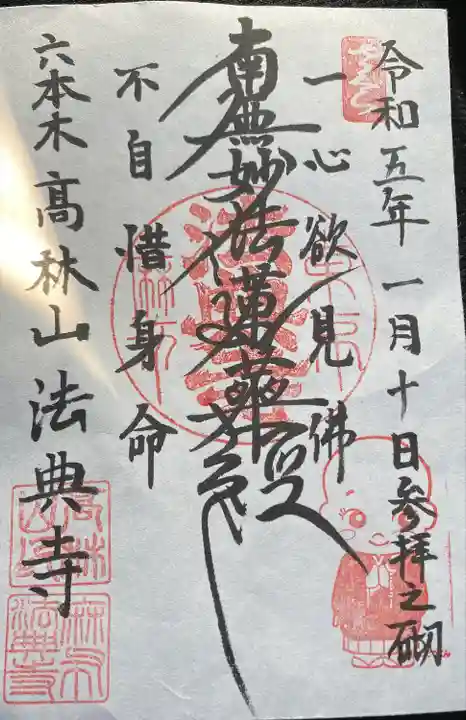 令和五年一月十日参拝之砌
一心欲見佛
南無妙法蓮華経
不自惜身命
六本木高林山法典寺